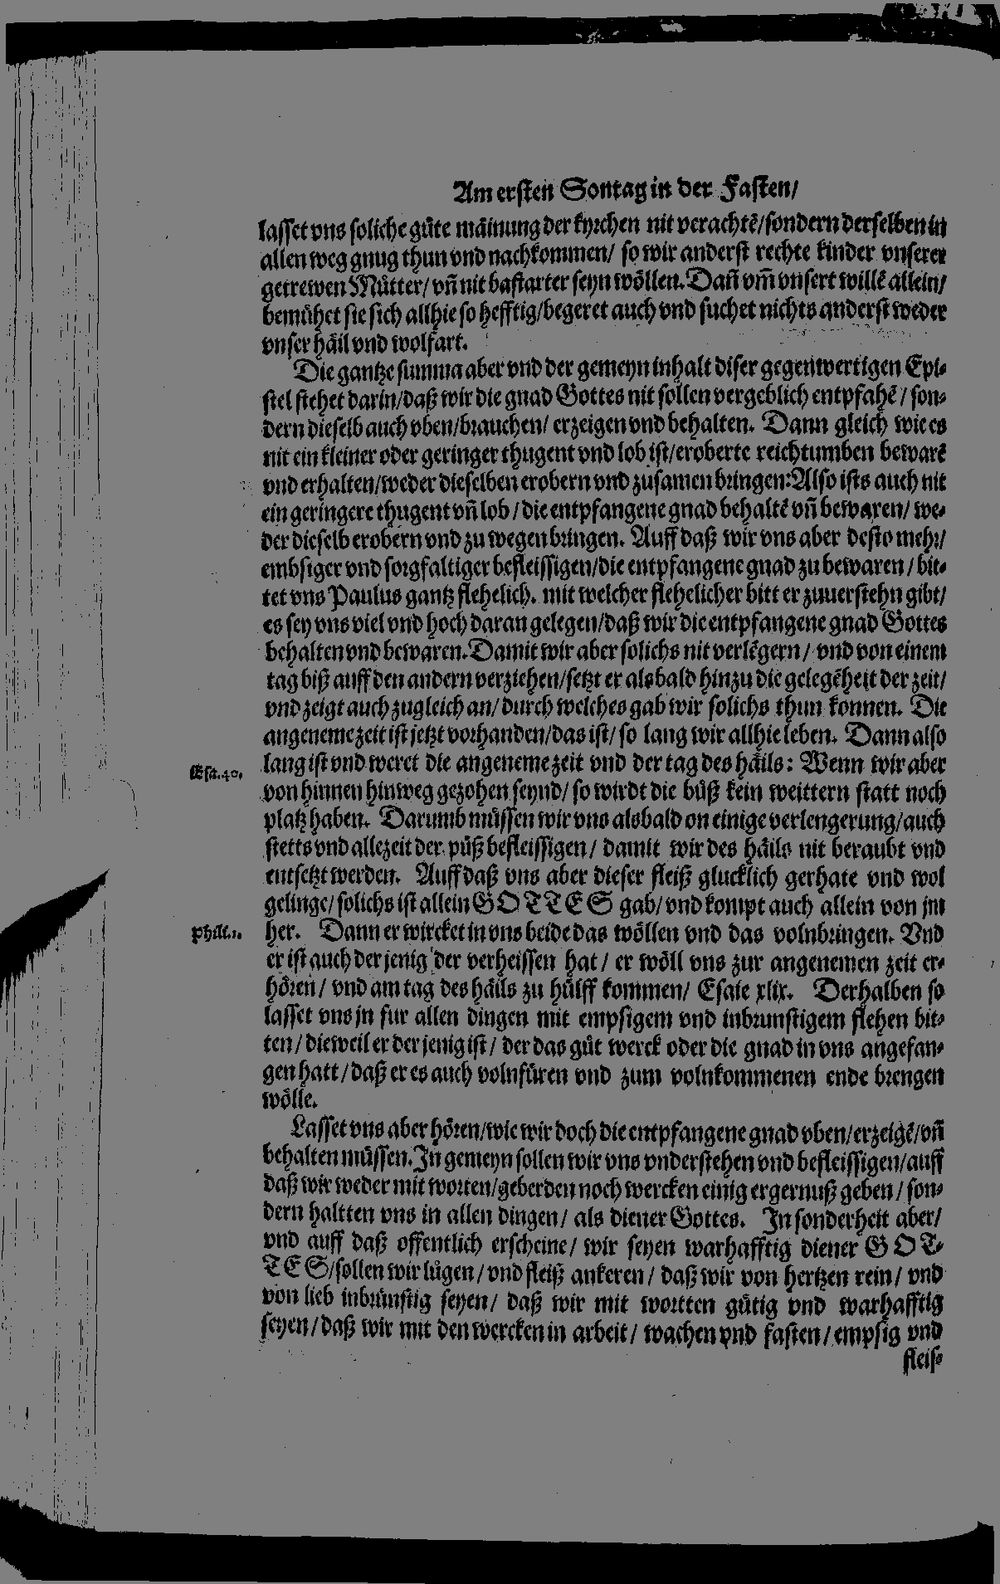 Am ersten Sontag in der Fasten/
lasset vns soliche gůte mäinung der kyrchen nit verachtē/sondern derselben in
allen weg gnug thun vnd nachkommen/ so wir anderst rechte kinder vnserer
getrewen Můtter/ vñ nit bastarter seyn wöllen. Dañ vm̃ vnsert willē allein/
bemühet sie sich allhie so hefftig/begeret auch vnd suchet nichts anderst weder
vnser häil vnd wolfart.
Die gantze summa aber vnd der gemeyn inhalt diser gegenwertigen Epi-
stel stehet darin/daß wir die gnad Gottes nit sollen vergeblich entpfahē/ son-
dern dieselb auch vben/brauchen/ erzeigen vnd behalten. Dann gleich wie es
nit ein kleiner oder geringer thugent vnd lob ist/eroberte reichtumben bewarē
vnd erhalten/weder dieselben erobern vnd zusamen bringen: Also ists auch nit
ein geringere thugent vñ lob/ die entpfangene gnad behaltē vñ bewaren/ we-
der dieselb erobern vnd zu wegen bringen. Auff daß wir vns aber desto mehr/
embsiger vnd sorgfaltiger befleissigen/die entpfangene gnad zu bewaren/ bit-
tet vns Paulus gantz flehelich. mit welcher flehelicher bitt er zuuerstehn gibt/
es sey vns viel vnd hoch daran gelegen/daß wir die entpfangene gnad Gottes
behalten vnd bewaren. Damit wir aber solichs nit verlēgern/ vnd von einem
tag biß auff den andern verziehen/setzt er alsbald hinzu die gelegēheit der zeit/
vnd zeigt auch zugleich an/ durch welches gab wir solichs thun konnen. Die
angeneme zeit ist jetzt vorhanden/das ist/ so lang wir allhie leben. Dann also
Esa.40. lang ist vnd weret die angeneme zeit vnd der tag des häils: Wenn wir aber
von hinnen hinweg gezohen seynd/ so wirdt die bůß kein weittern statt noch
platz haben. Darumb müssen wir vns alsbald on einige verlengerung/auch
stetts vnd allezeit der půß befleissigen/ damit wir des häils nit beraubt vnd
entsetzt werden. Auff daß vns aber dieser fleiß glucklich gerhate vnd wol
gelinge/ solichs ist allein GOTTES gab/ vnd kompt auch allein von jm
Phill.1. her. Dann er wircket in vns beide das wöllen vnd das volnbringen. Vnd
er ist auch der jenig der verheissen hat/ er wöll vns zur angenemen zeit er-
hören/ vnd am tag des häils zu hülff kommen/ Esaie xlix. Derhalben so
lasset vns jn fur allen dingen mit empsigem vnd inbrunstigem flehen bit-
ten/ dieweil er der jenig ist/ der das gůt werck oder die gnad in vns angefan-
gen hatt/ daß er es auch volnfüren vnd zum volnkommenen ende brengen
wölle.
Lasset vns aber hören/wie wir doch die entpfangene gnad vben/erzeigē/vñ
behalten müssen. In gemeyn sollen wir vns vnderstehen vnd befleissigen/auff
daß wir weder mit worten/geberden noch wercken einig ergernuß geben/ son-
dern haltten vns in allen dingen/ als diener Gottes. In sonderheit aber/
vnd auff daß offentlich erscheine/ wir seyen warhafftig diener GOT-
TES/sollen wir lůgen/ vnd fleiß ankeren/ daß wir von hertzen rein/ vnd
von lieb inbrünstig seyen/ daß wir mit wortten gütig vnd warhafftig
seyen/ daß wir mit den wercken in arbeit/ wachen vnd fasten/ empsig vnd
fleis-